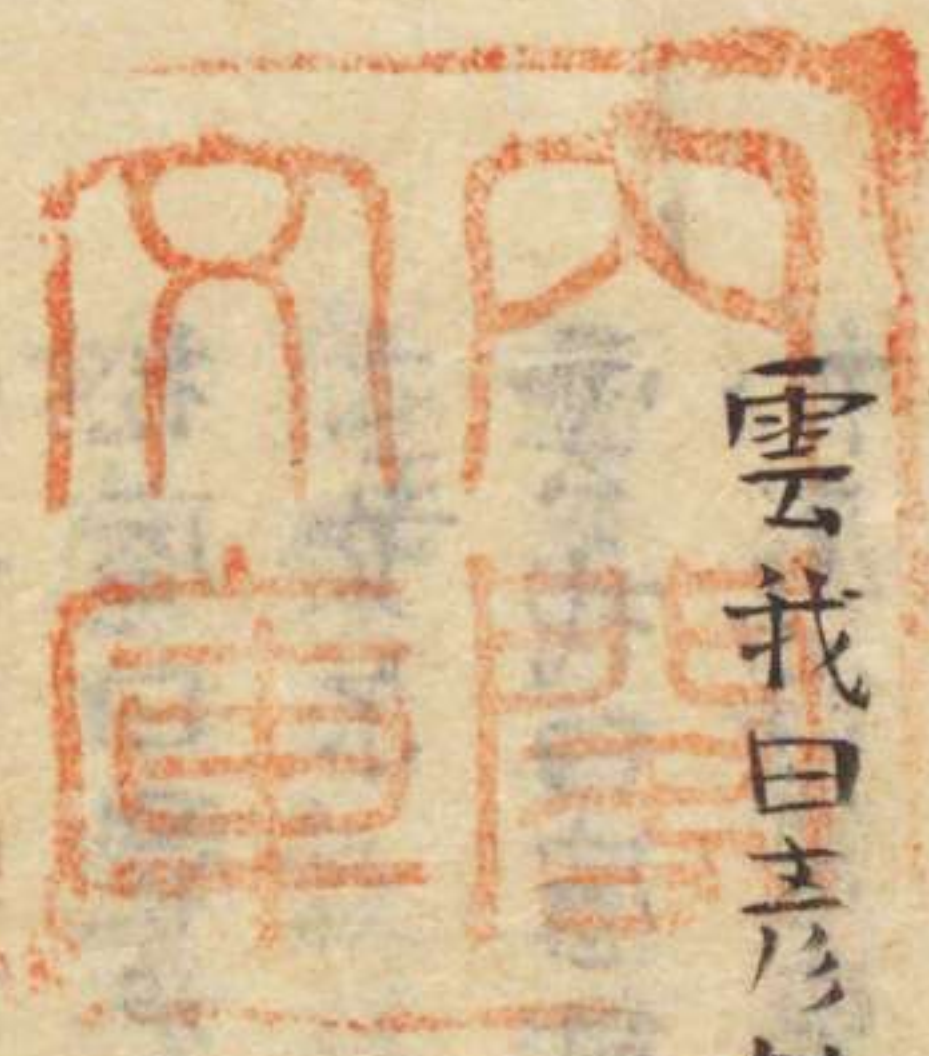 雲我曰彦
内閣
文庫